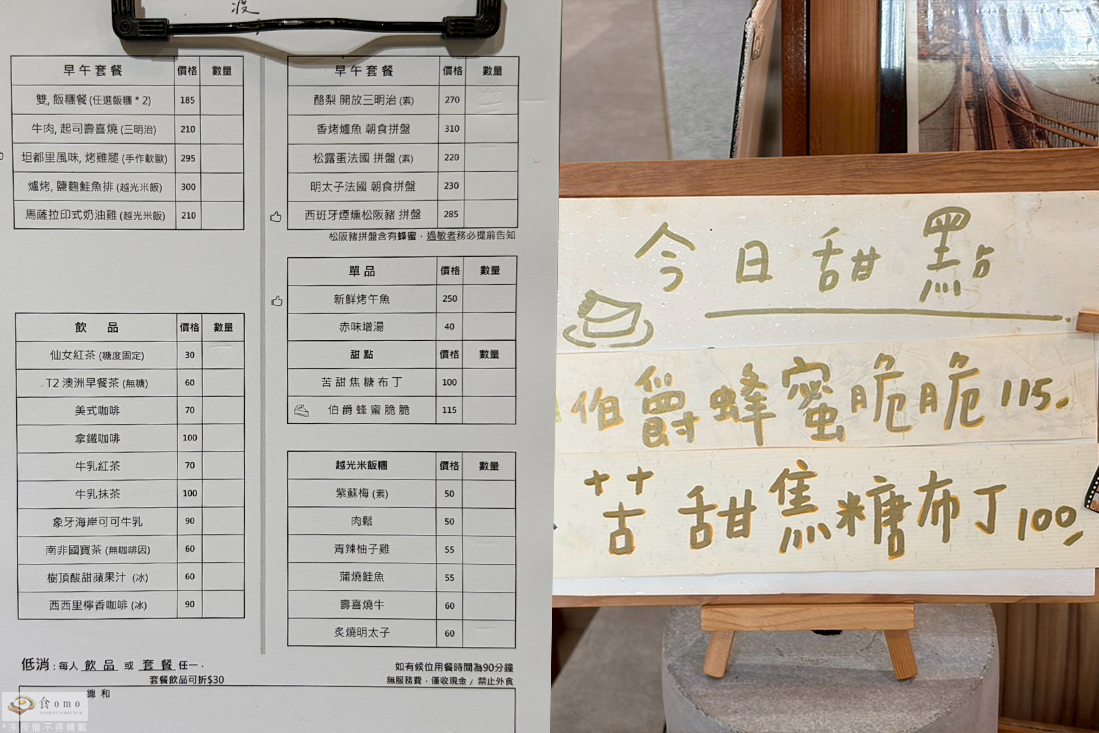 早午套餐 價格 數量
雙, 飯糰餐 (任選飯糰 * 2) 185
牛肉, 起司壽喜燒 (三明治) 210
坦都里風味, 烤雞腿 (手作軟歐) 295
爐烤, 鹽麴鮭魚排 (越光米飯) 300
馬薩拉印式奶油雞 (越光米飯) 210
飲 品 價格 數量
仙女紅茶 (糖度固定) 30
T2 澳洲早餐茶 (無糖) 60
美式咖啡 70
拿鐵咖啡 100
牛乳紅茶 70
牛乳抹茶 100
象牙海岸可可牛乳 90
南非國寶茶 (無咖啡因) 60
樹頂酸甜蘋果汁 (冰) 60
西西里檸香咖啡 (冰) 90
早午套餐 價格 數量
酪梨 開放三明治 (素) 270
香烤爐魚 朝食拼盤 310
松露蛋法國 拼盤 (素) 220
明太子法國 朝食拼盤 230
西班牙煙燻松阪豬 拼盤 285
松阪豬拼盤含有蜂蜜，過敏者務必提前告知
單品 價格 數量
新鮮烤午魚 250
赤味增湯 40
甜點 價格 數量
苦甜焦糖布丁 100
伯爵蜂蜜脆脆 115
越光米飯糰 價格 數量
紫蘇梅 (素) 50
肉鬆 50
青辣柚子雞 55
蒲燒鮭魚 55
壽喜燒牛 60
炙燒明太子 60
低消 : 每人 飲品 或 套餐 任一，
套餐飲品可折$30
如有候位用餐時間為90分鐘
無服務費，僅收現金 / 禁止外食
總和
食omo
*未授權不得轉載
今日甜點
伯爵蜂蜜脆脆 115.
苦甜焦糖布丁 100